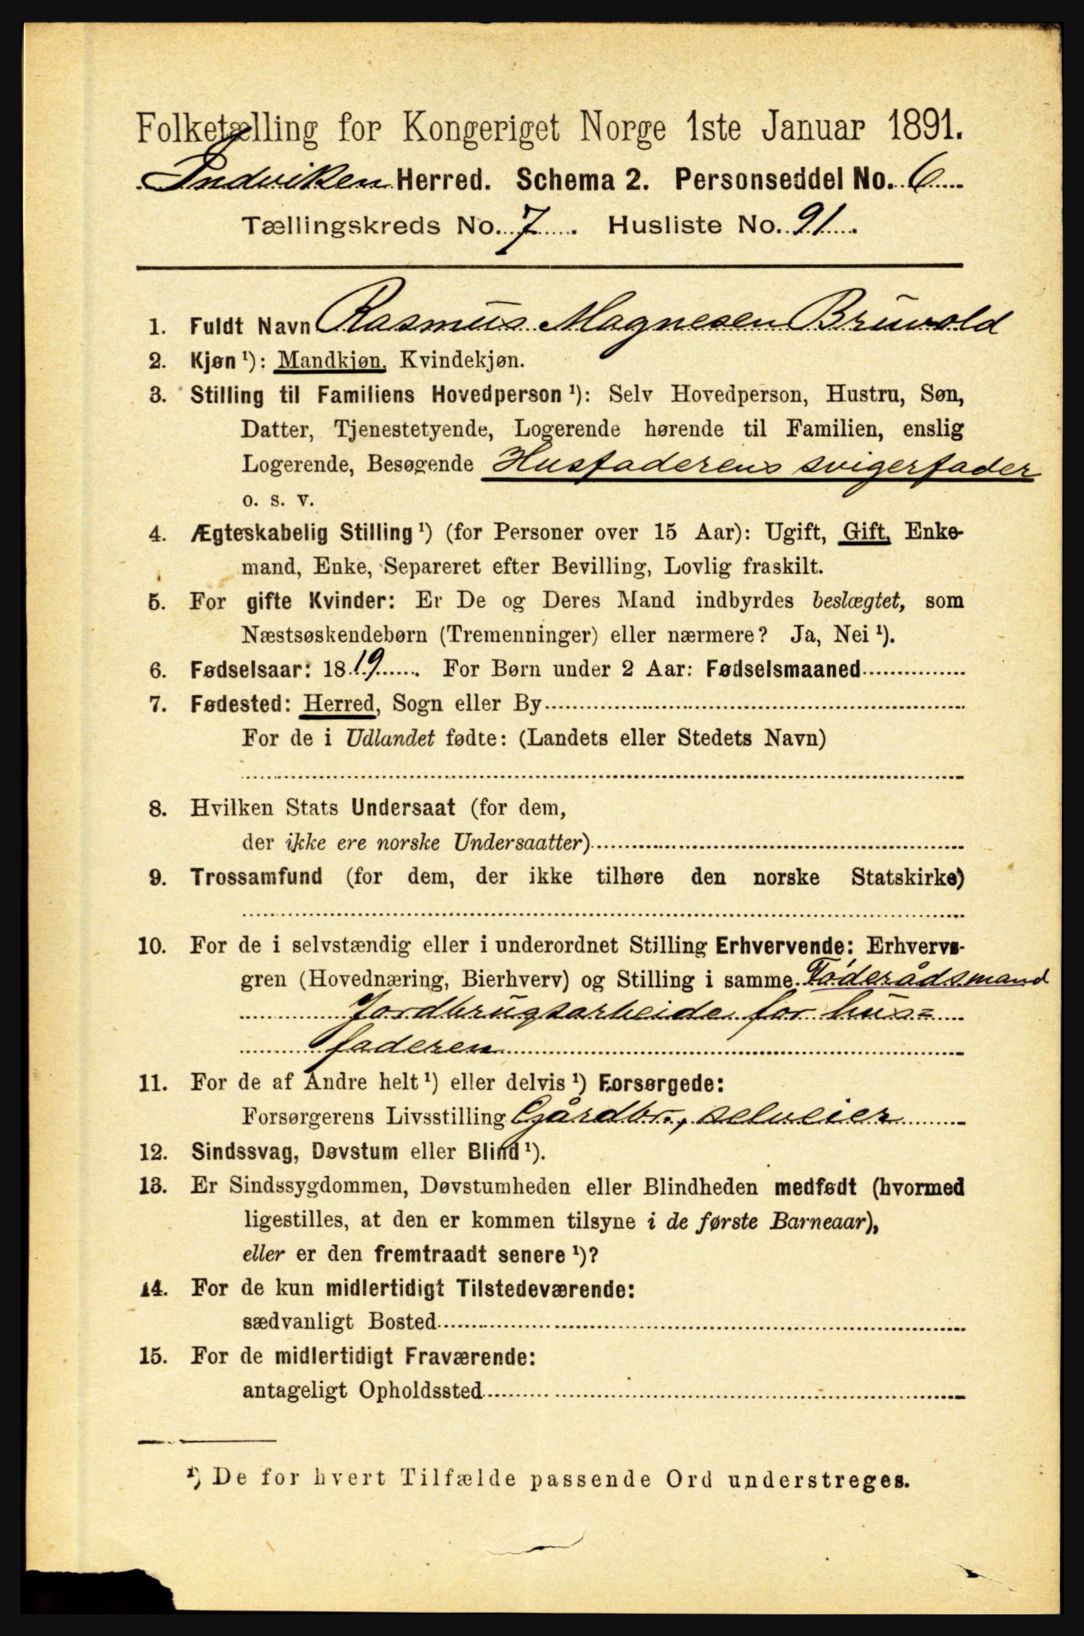 Folketælling for Kongeriget Norge 1ste Januar 1891.
Indviken Herred. Schema 2. Personseddel No. 6
Tællingskreds No. 7. Husliste No. 91.
1. Fuldt Navn Rasmus Magnesen Bruvold
2. Kjøn ¹): Mandkjøn, Kvindekjøn.
3. Stilling til Familiens Hovedperson ¹): Selv Hovedperson, Hustru, Søn,
Datter, Tjenestetyende, Logerende hørende til Familien, enslig
Logerende, Besøgende Husfaderens svigerfader
o. s. v.
4. Ægteskabelig Stilling ¹) (for Personer over 15 Aar): Ugift, Gift, Enke-
mand, Enke, Separeret efter Bevilling, Lovlig fraskilt.
5. For gifte Kvinder: Er De og Deres Mand indbyrdes beslægtet, som
Næstsøskendebørn (Tremenninger) eller nærmere? Ja, Nei ¹).
6. Fødselsaar: 1819. For Børn under 2 Aar: Fødselsmaaned
7. Fødested: Herred, Sogn eller By
For de i Udlandet fødte: (Landets eller Stedets Navn)
8. Hvilken Stats Undersaat (for dem,
der ikke ere norske Undersaatter)
9. Trossamfund (for dem, der ikke tilhøre den norske Statskirke)
10. For de i selvstændig eller i underordnet Stilling Erhvervende: Erhvervs-
gren (Hovednæring, Bierhverv) og Stilling i samme Föderådsmand
Jordbrugsarbeide for hus=
faderen
11. For de af Andre helt ¹) eller delvis ¹) Forsørgede:
Forsørgerens Livsstilling Gårdbr., selveier
12. Sindssvag, Døvstum eller Blind ¹).
13. Er Sindssygdommen, Døvstumheden eller Blindheden medfødt (hvormed
ligestilles, at den er kommen tilsyne i de første Barneaar),
eller er den fremtraadt senere ¹)?
14. For de kun midlertidigt Tilstedeværende:
sædvanligt Bosted
15. For de midlertidigt Fraværende:
antageligt Opholdssted
¹) De for hvert Tilfælde passende Ord understreges.